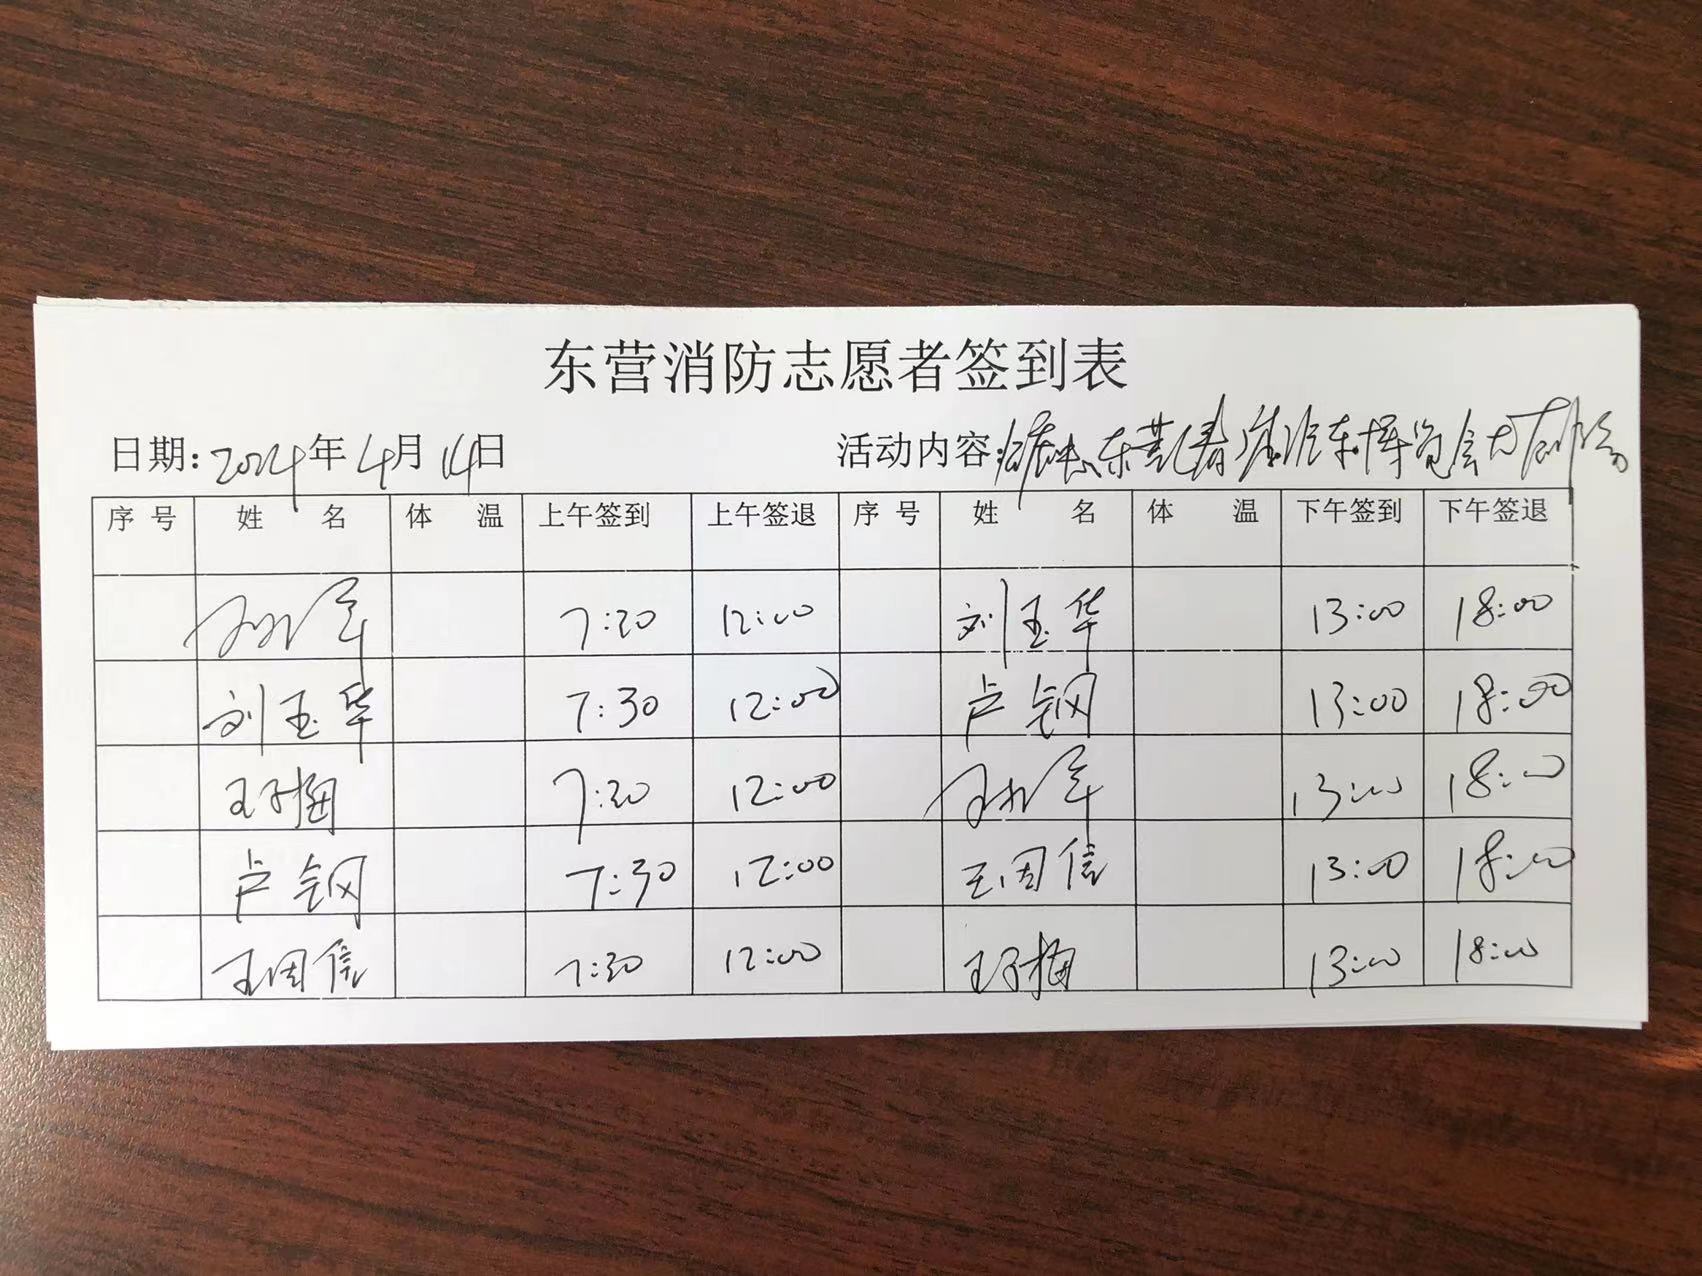 东营消防志愿者签到表
日期:2024年4月14日 活动内容:
序号 姓名 体温 上午签到 上午签退 序号 姓名 体温 下午签到 下午签退
7:30 12:00 刘玉华 13:00 18:00
刘玉华 7:30 12:00 卢钢 13:00 18:00
王子梅 7:30 12:00 13:00 18:00
卢钢 7:30 12:00 王国信 13:00 18:00
王国信 7:30 12:00 王子梅 13:00 18:00